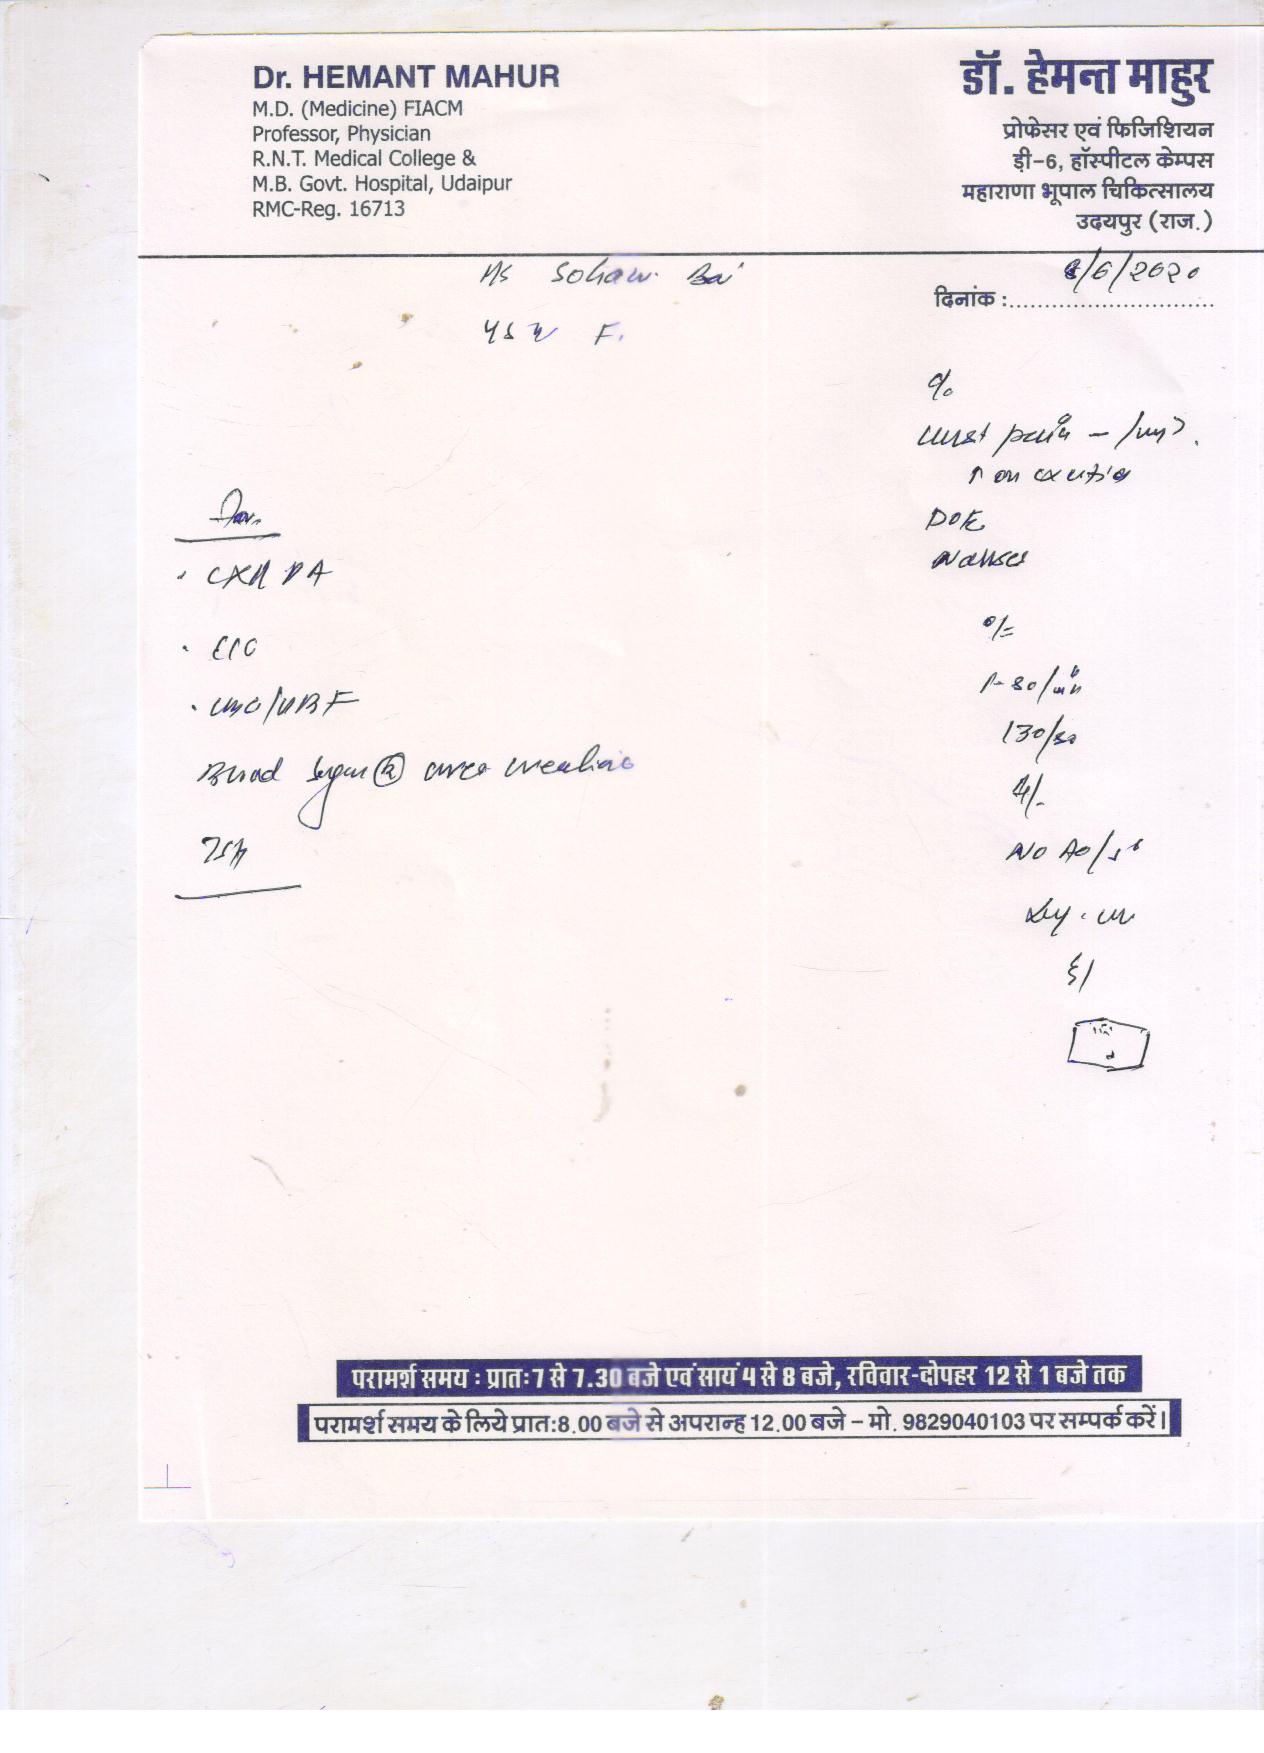 Dr. HEMANT MAHUR
M.D. (Medicine) FIACM
Professor, Physician
R.N.T. Medical College &
M.B. Govt. Hospital, Udaipur
RMC-Reg. 16713
डॉ. हेमन्त माहुर
प्रोफेसर एवं फिजिशियन
ड़ी-6, हॉस्पीटल केम्पस
महाराणा भूपाल चिकित्सालय
उदयपुर (राज.)
दिनांक :.............................
8/6/2020
Sohan Bai
F.
c/o
chest pain -
↑ on exertion
DOE
Nausea
o/e
P-80/min
130/80
Inv.
· CXR PA
· ECG
· CBC/
Blood Sugar (R) urea creatinine
TSH
परामर्श समय : प्रातः7 से 7.30 बजे एवं सायं 4 से 8 बजे, रविवार-दोपहर 12 से 1 बजे तक
परामर्श समय के लिये प्रात:8.00 बजे से अपरान्ह 12.00 बजे – मो. 9829040103 पर सम्पर्क करें।